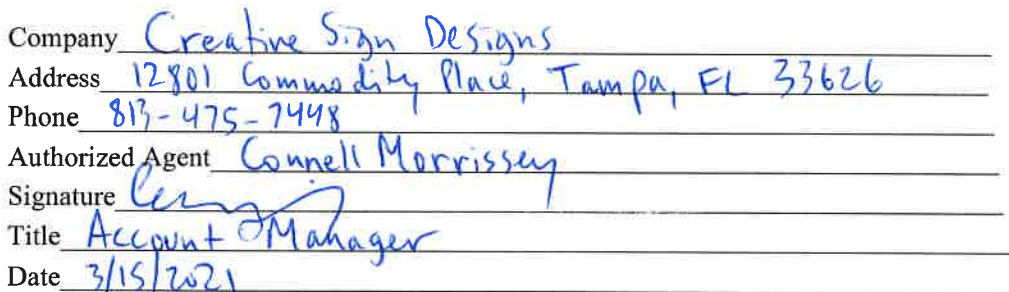 Company Creative Sign Designs
Address 12801 Commodity Place, Tampa, FL 33626
Phone 813-475-7448
Authorized Agent Connell Morrissey
Signature
Title Account Manager
Date 3/15/2021